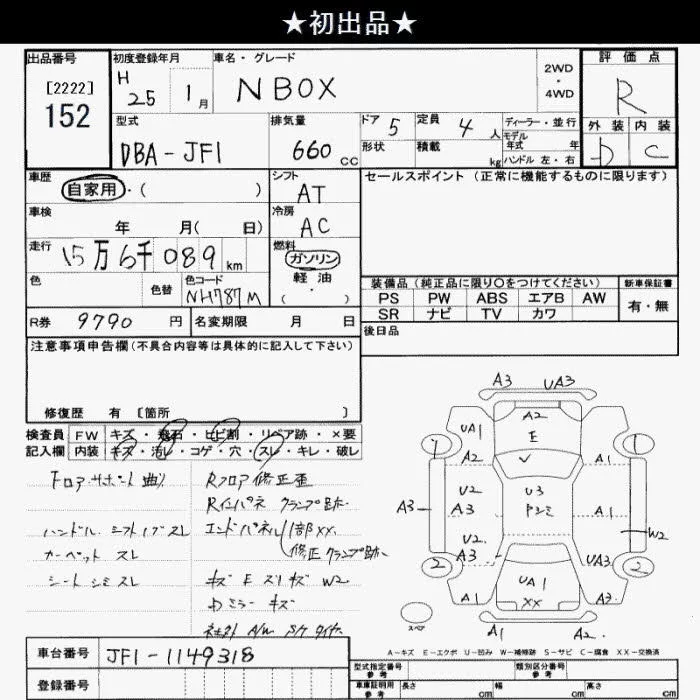 ★初出品★
出品番号
[2222]
152
初度登録年月
H 25 1月
車名・グレード
N BOX
2WD
・
4WD
評価点
R
外装 内装
D C
型式
DBA-JF1
排気量
660 CC
ドア 5
形状
定員 4 人
積載 kg
ディーラー・並行
モデル
年式 年
ハンドル 左・右
車歴
自家用・( )
シフト
AT
セールスポイント(正常に機能するものに限ります)
車検
年 月( 日)
冷房
AC
走行
15万6千089km
燃料
ガソリン
軽油
( ・ )
色
色替
色コード
NH787M
装備品(純正品に限り○をつけてください)
新車保証書
PS PW ABS エアB AW
SR ナビ TV カワ
有・無
R券 9790 円
名変期限 月 日
後日品
注意事項申告欄(不具合内容等は具体的に記入して下さい)
修復歴 有 [箇所 ]
検査員
記入欄
FW キズ・飛石・ヒビ割・リペア跡・×要
内装 キズ・汚レ・コゲ・穴・スレ・キレ・破レ
フロア・サポート曲り
ハンドル.シフトノブスレ
カーペット スレ
シートシミスレ
Rフロア修正歪
Rインパネ クランプ跡
エンドパネル 1部XX
修正クランプ跡
キズ E スリキズ W2
ミラー キズ
社外 A/W
A3 UA3
A2
UA1 E
1 1
A2 A1
U2 U3
A3 A3 A1
W2
U2
A3 UA3
2 2
UA1
A3 XX A3
スペア
A1 A2
A-キズ E-エクボ U-凹み W-補修跡 S-サビ C-腐食 XX-交換済
車台番号 JF1-1149318
登録番号
型式指定番号
参考
類別区分番号
参考
車庫証明用
参考
長さ cm 幅 cm 高さ cm